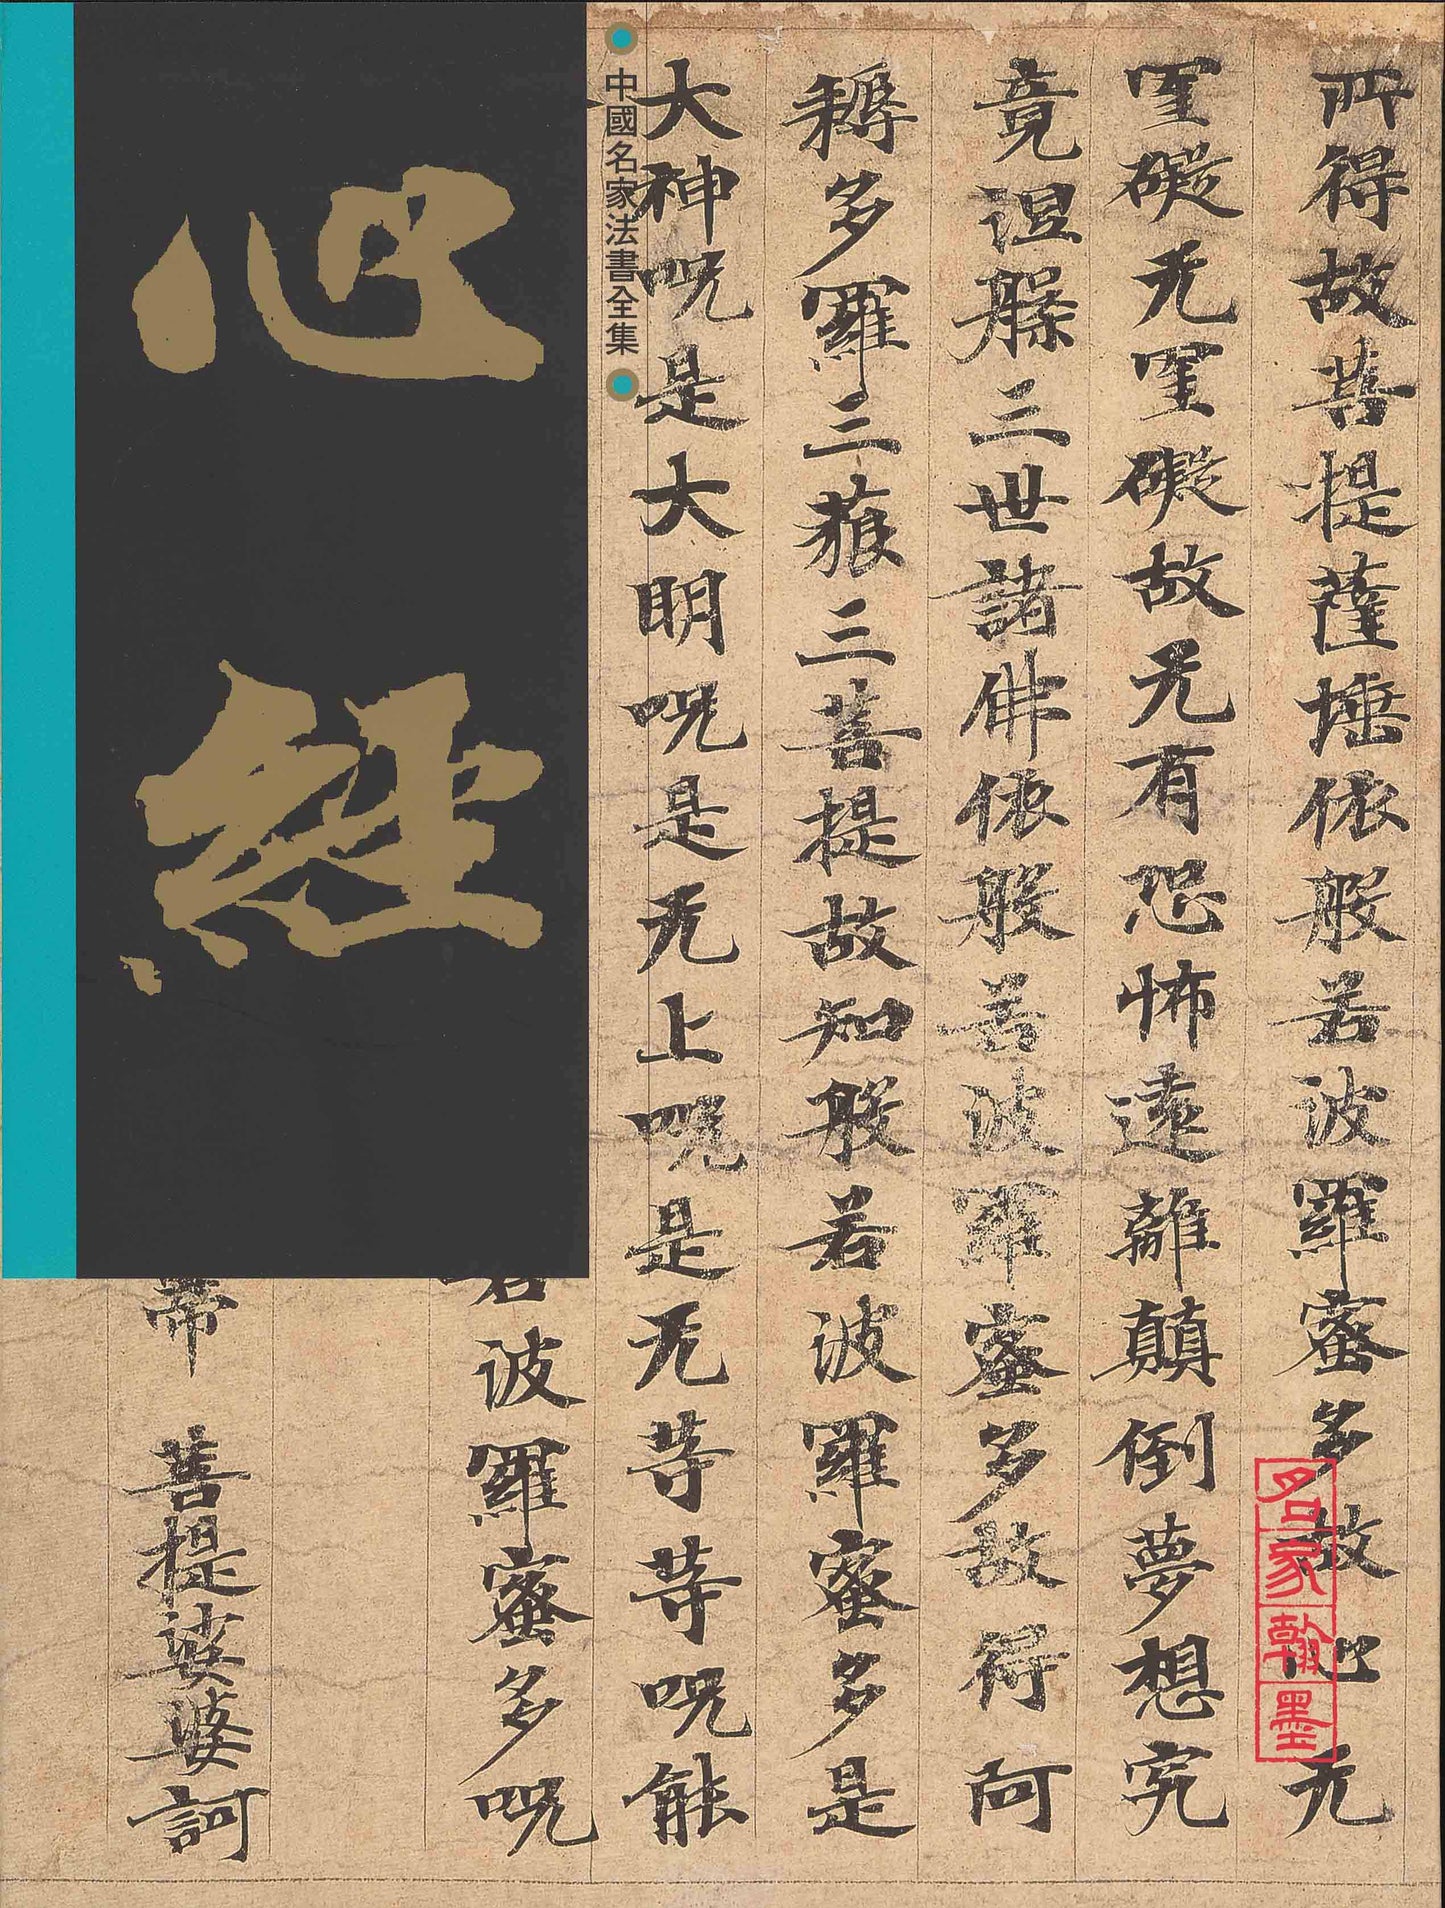 心經
中國名家法書全集
所得故菩提薩埵依般若波羅蜜多故心无
罣礙无罣礙故无有恐怖遠離顛倒夢想究
竟涅槃三世諸佛依般若波羅蜜多故得阿
耨多羅三藐三菩提故知般若波羅蜜多是
大神呪是大明呪是无上呪是无等等呪能
若波羅蜜多呪
帝 菩提娑婆訶
名家翰墨